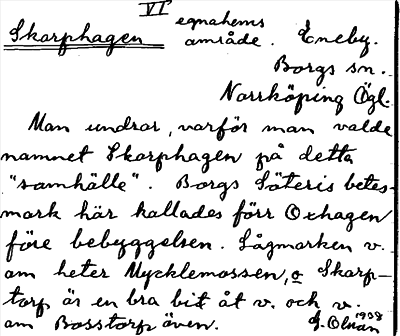 VI
Skarphagen egnahems
område. Eneby.
Borgs sn.
Norrköping Ögl.
Man undrar, varför man valde
namnet Skarphagen på detta
"samhälle". Borgs Säteris betes-
mark här kallades förr Oxhagen
före bebyggelsen. Lågmarken v.
om heter Mycklemossen, o Skarp-
torp är en bra bit åt v. och v.
om Bosstorp även.
1938